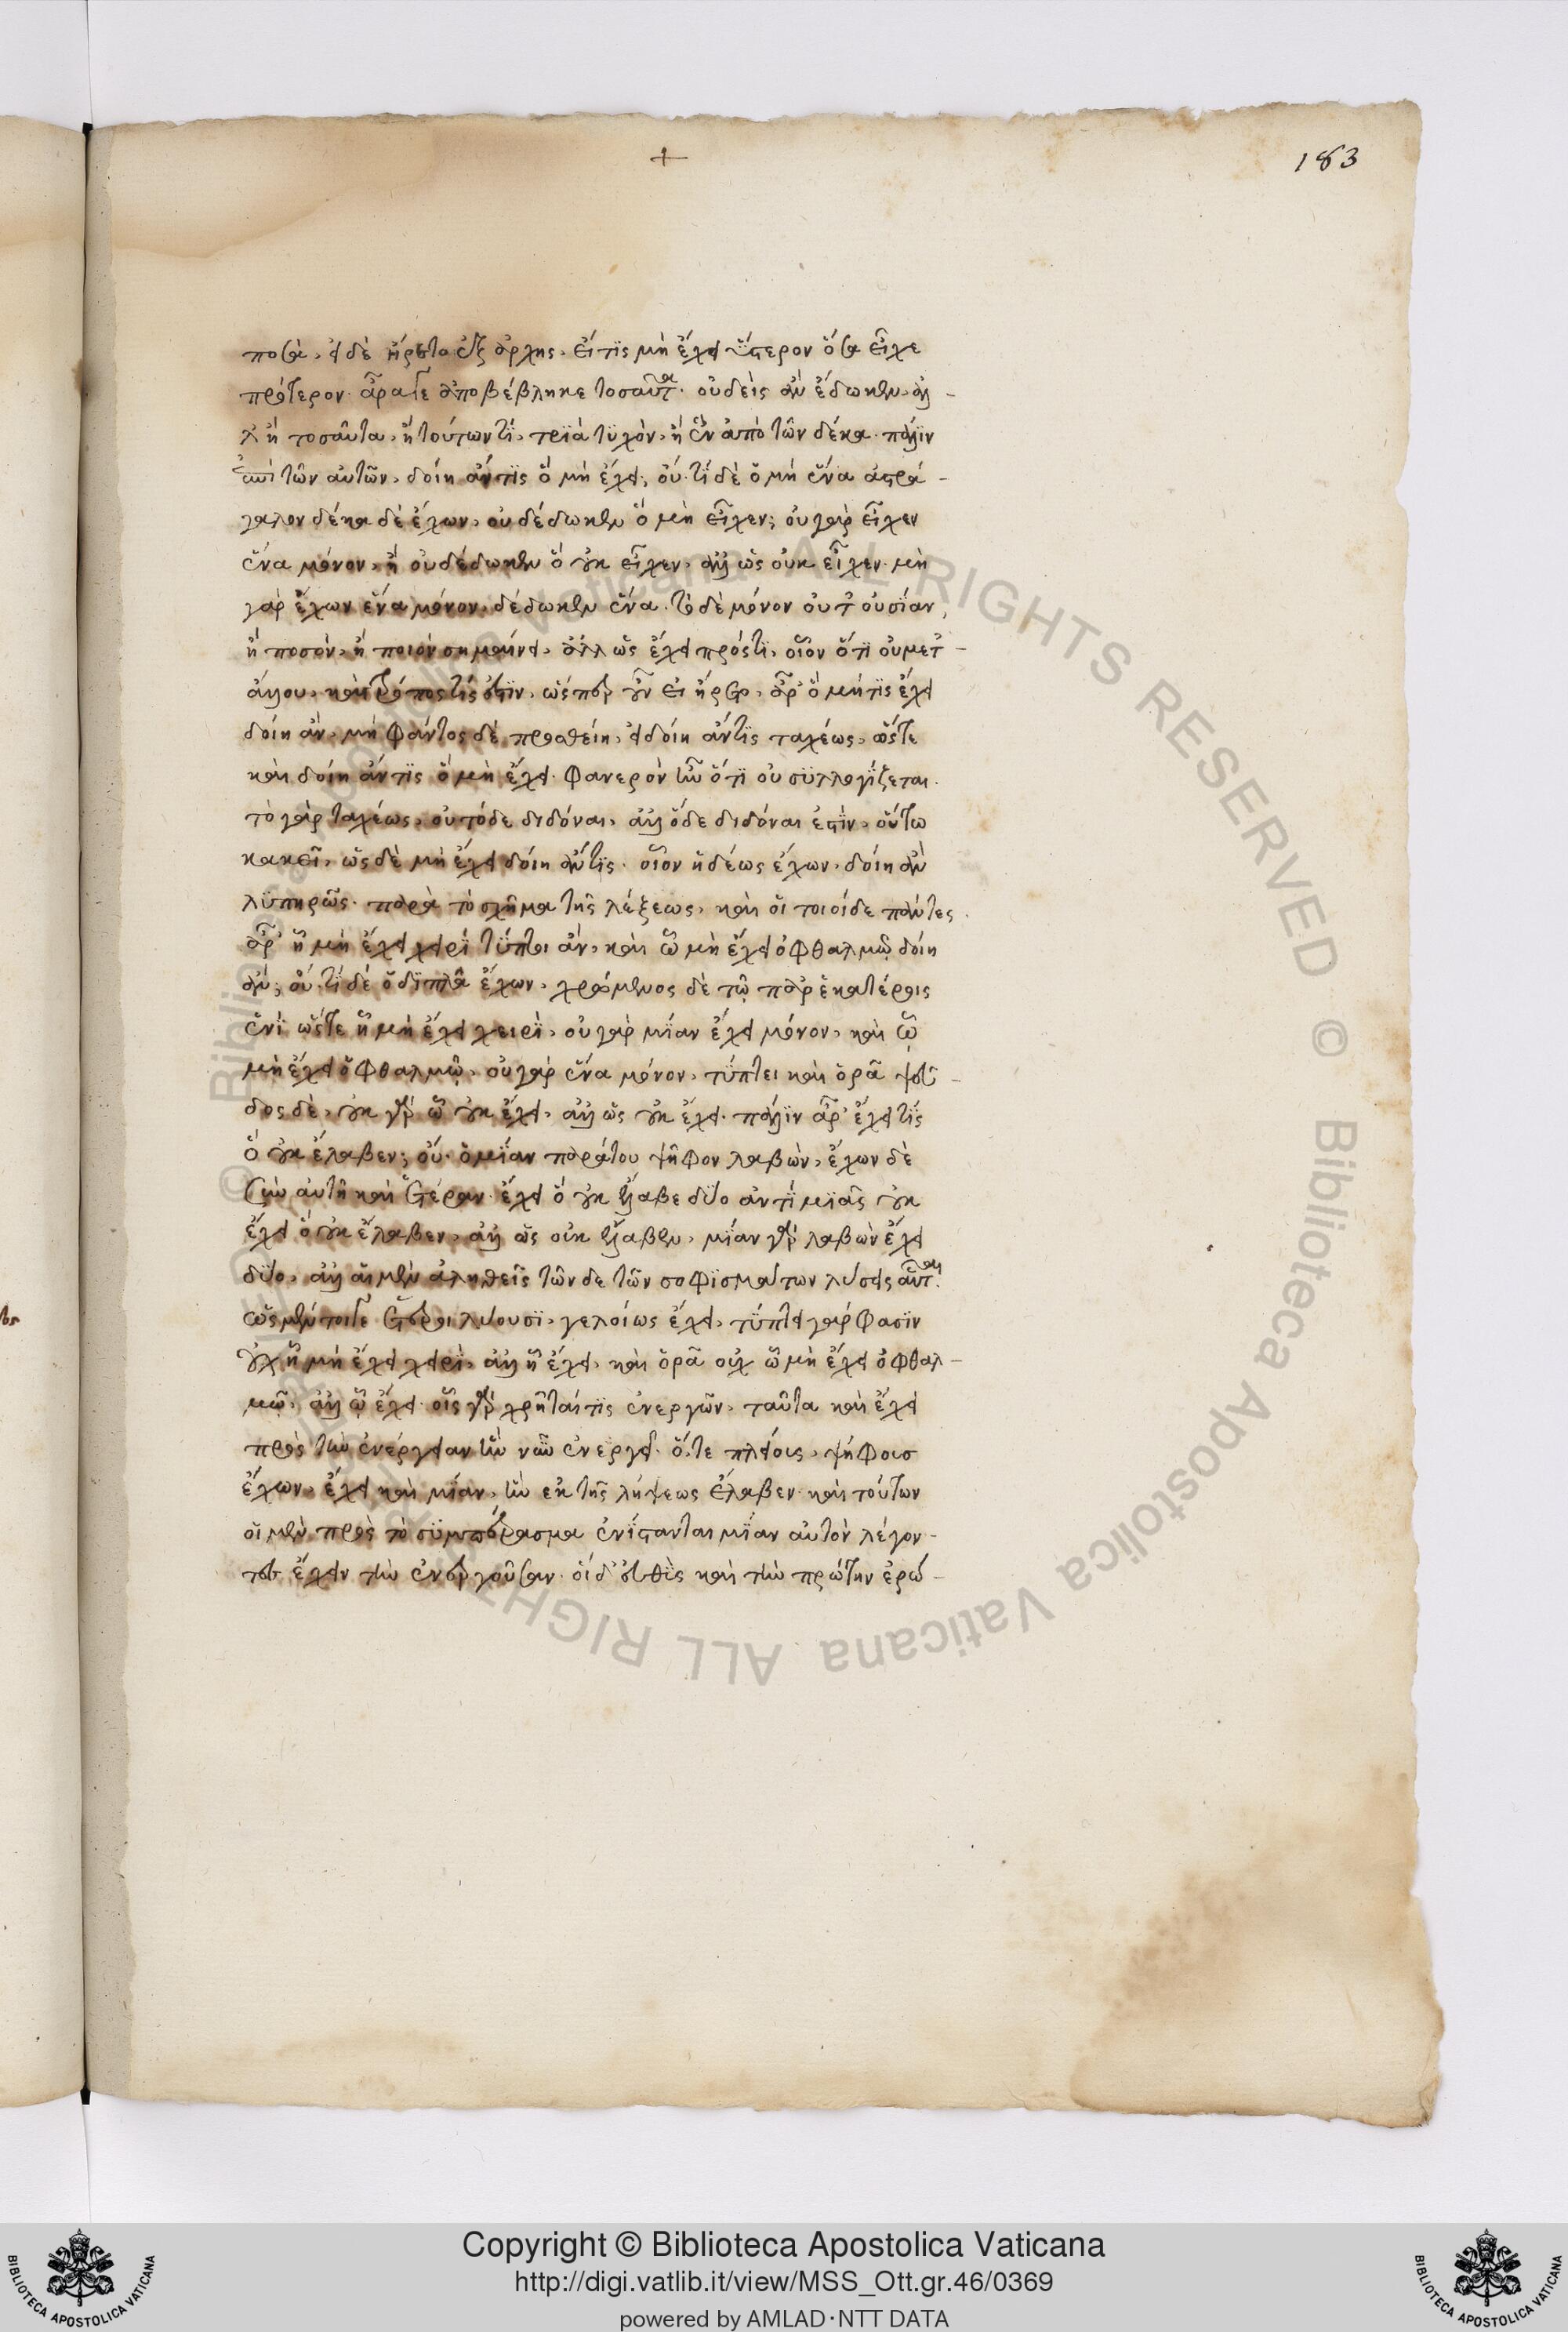 183
ποσὰ, εἰ δὲ ἤρετο ἐξ ἀρχῆς, εἴ τῒς μὴ ἔχει ὕστερον ὅσα εἶχε
πρότερον ἆρά γε ἀποβέβληκε τοσαῦτα. οὐδεὶς ἂν ἔδωκεν, ἀλ-
λ' ἢ τοσαῦτα, ἢ τούτων τῒ, τρία τυχὸν, ἢ ἓν ἀπὸ τῶν δέκα. πάλιν
ἐπὶ τῶν αὐτῶν, δοίη ἄν τις ὃ μὴ ἔχει; οὔ. τί δὲ ὁ μὴ ἕνα ἀστρά-
γαλον δέκα δὲ ἔχων, οὐ δέδωκεν ὃ μὴ εἶχεν; οὐ γὰρ εἶχεν
ἕνα μόνον, ἢ οὐ δέδωκεν ὃ οὐκ εἶχεν, ἀλλ' ὡς οὐκ εἶχεν. μὴ
γὰρ ἔχων ἕνα μόνον, δέδωκεν ἕνα. τὸ δὲ μόνον οὔτε οὐσίαν,
ἢ ποσὸν, ἢ ποιὸν σημαίνει, ἀλλ' ὡς ἔχει πρός τι, οἷον ὅτι οὐ μετ'
ἄλλου, καὶ τρόπος τίς ἐστιν, ὥσπερ οὖν εἰ ἤρετο, ἆρ' ὃ μή τις ἔχει
δοίη ἂν, μὴ φάντος δὲ προσθείη, εἰ δοίη ἄν τις ταχέως, ὥστε
καὶ δοίη ἄν τις ὃ μὴ ἔχει. φανερὸν οὖν ὅτι οὐ συλλογίζεται.
τὸ γὰρ ταχέως, οὐ τόδε διδόναι, ἀλλ' ὧδε διδόναι ἐστὶν, οὕτω
κἀκεῖ, ὡς δὲ μὴ ἔχει δοίη ἄν τις. οἷον ἡδέως ἔχων, δοίη ἂν
λυπηρῶς. παρὰ τὸ σχῆμα τῆς λέξεως, καὶ οἱ τοιοίδε πάντες
ἆρ' ᾗ μὴ ἔχει χειρὶ τύπτοι ἂν, καὶ ᾧ μὴ ἔχει ὀφθαλμῷ δοίη
ἂν; οὔ. τί δὲ ὁ διπλᾶ ἔχων, χρώμενος δὲ τῷ παρ' ἑκατέροις
ἑνὶ ὥστε ᾗ μὴ ἔχει χειρὶ, οὐ γὰρ μίαν ἔχει μόνον, καὶ ᾧ
μὴ ἔχει ὀφθαλμῷ, οὐ γὰρ ἕνα μόνον, τύπτει καὶ ὁρᾷ ψεῦ-
δος δὲ, οὐκ γὰρ ᾧ οὐκ ἔχει, ἀλλ' ὡς οὐκ ἔχει. πάλιν ἆρ' ἔχει τις
ὃ οὐκ ἔλαβεν; οὔ. ὁ μίαν παρά του ψῆφον λαβὼν, ἔχων δὲ
σὺν αὐτῇ καὶ ἑτέραν. ἔχει ὃ οὐκ ἔλαβε δύο ἀντὶ μιᾶς οὐκ
ἔχει ὃ οὐκ ἔλαβεν, ἀλλ' ὡς οὐκ ἔλαβεν, μίαν γὰρ λαβὼν ἔχει
δύο, ἀλλ' αἱ μὲν ἀληθεῖς τῶνδε τῶν σοφισμάτων λύσεις αὗται.
ὡς μέντοι γε ἕτεροι λύουσι, γελοίως ἔχει, τύπτει γάρ φασιν
οὐχ ᾗ μὴ ἔχει χειρὶ, ἀλλ' ᾗ ἔχει, καὶ ὁρᾷ οὐχ ᾧ μὴ ἔχει ὀφθαλ-
μῷ, ἀλλ' ᾧ ἔχει. οἷς γὰρ χρῆταί τις ἐνεργῶν, ταῦτα καὶ ἔχει
πρὸς τὴν ἐνέργειαν ἣν νῦν ἐνεργεῖ. ὅ τε πλείους, ψήφους
ἔχων, ἔχει καὶ μίαν, ἣν ἐκ τῆς λήψεως ἔλαβεν. καὶ τούτων
οἱ μὲν πρὸς τὸ συμπέρασμα ἐνίστανται μίαν αὐτὸν λέγον-
τες ἔχειν τὴν ἐνεργοῦσαν. οἱ δ' εὐθὺς καὶ τὴν πρώτην ἐρώ-
Copyright © Biblioteca Apostolica Vaticana
http://digi.vatlib.it/view/MSS_Ott.gr.46/0369
powered by AMLAD·NTT DATA
BIBLIOTECA APOSTOLICA VATICANA
BIBLIOTECA APOSTOLICA VATICANA
© Biblioteca Apostolica Vaticana ALL RIGHTS RESERVED © Biblioteca Apostolica Vaticana ALL RIGHTS RESERVED